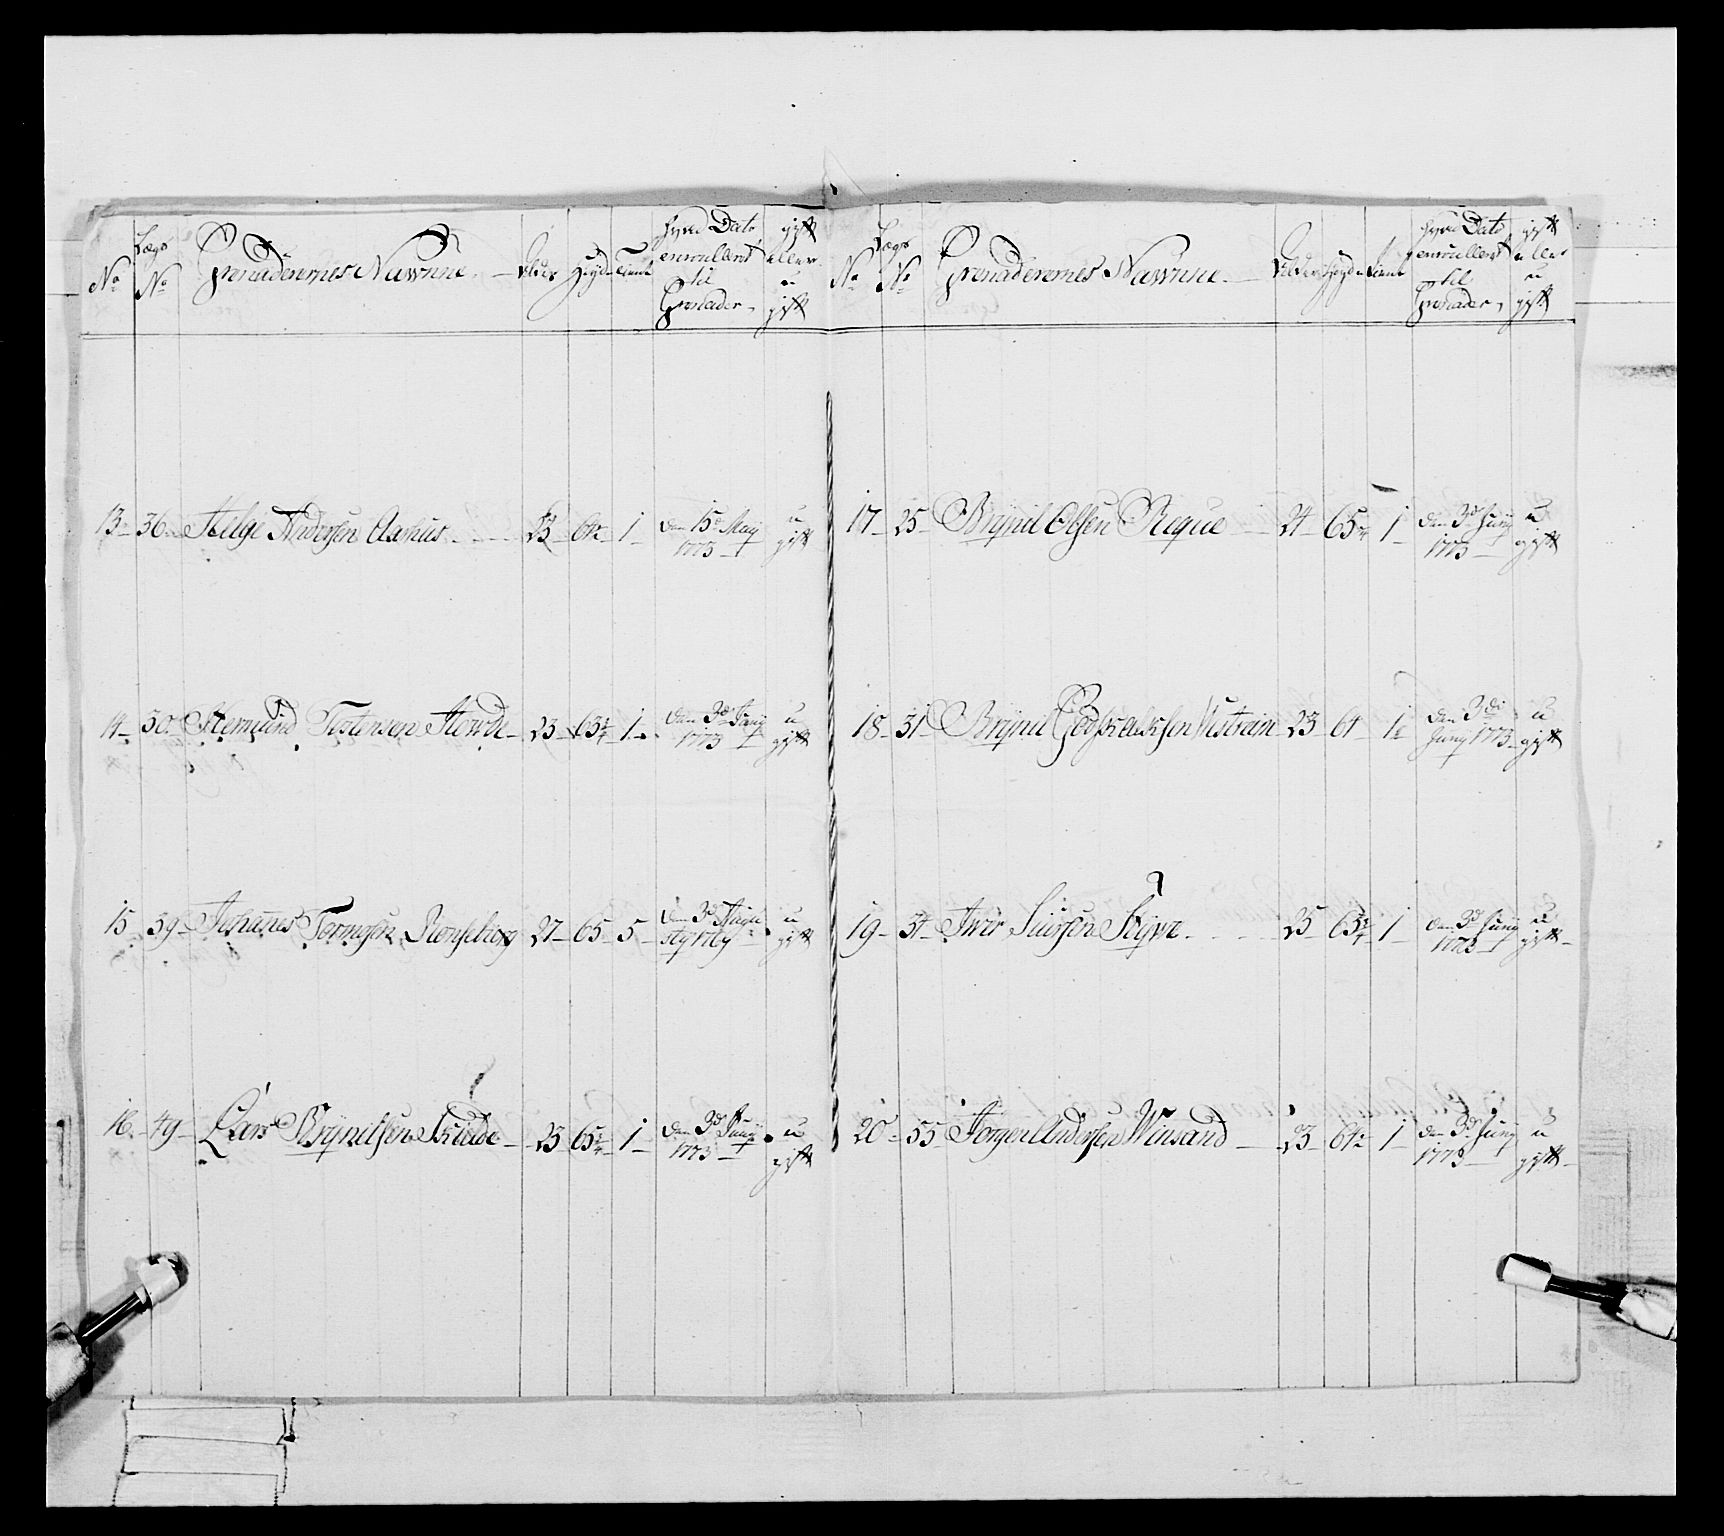 No
Lægs No
Grenaderernes Nawnne.
Alder
Høyde
Tient
hvad Dato enroullert til Grenader,
gift eller u gift
13 36 Helge Andersen Aarhus 23 64 1 den 15de May 1773 u gift
14 30 Hermund Tostensen Howde 23 63¾ 1 den 3de Juny 1773 u gift
15 39 Johanes Tormosen 27 65 5 den 3de 1769 u gift
16 49 Lars Brynelsen Schielde 23 65¾ 1 den 3de Juny 1773 u gift
No
Lægs No
Grenaderernes Nawnne.
Alder
Høyde
Tient
hvad Dato enroullert til Grenader,
gift eller u gift
17 25 Brynil Olsen Reque 24 65 1 den 3de Juny 1773 u gift
18 31 Brynil 23 64 1 den 3die Juny 1773 u gift
19 37 Iwer Siursen 25 63¾ 1 den 3de Juny 1773 u gift
20 55 Jørgen Andersen Winsand 23 64½ 1 den 3de Juny 1773 u gift